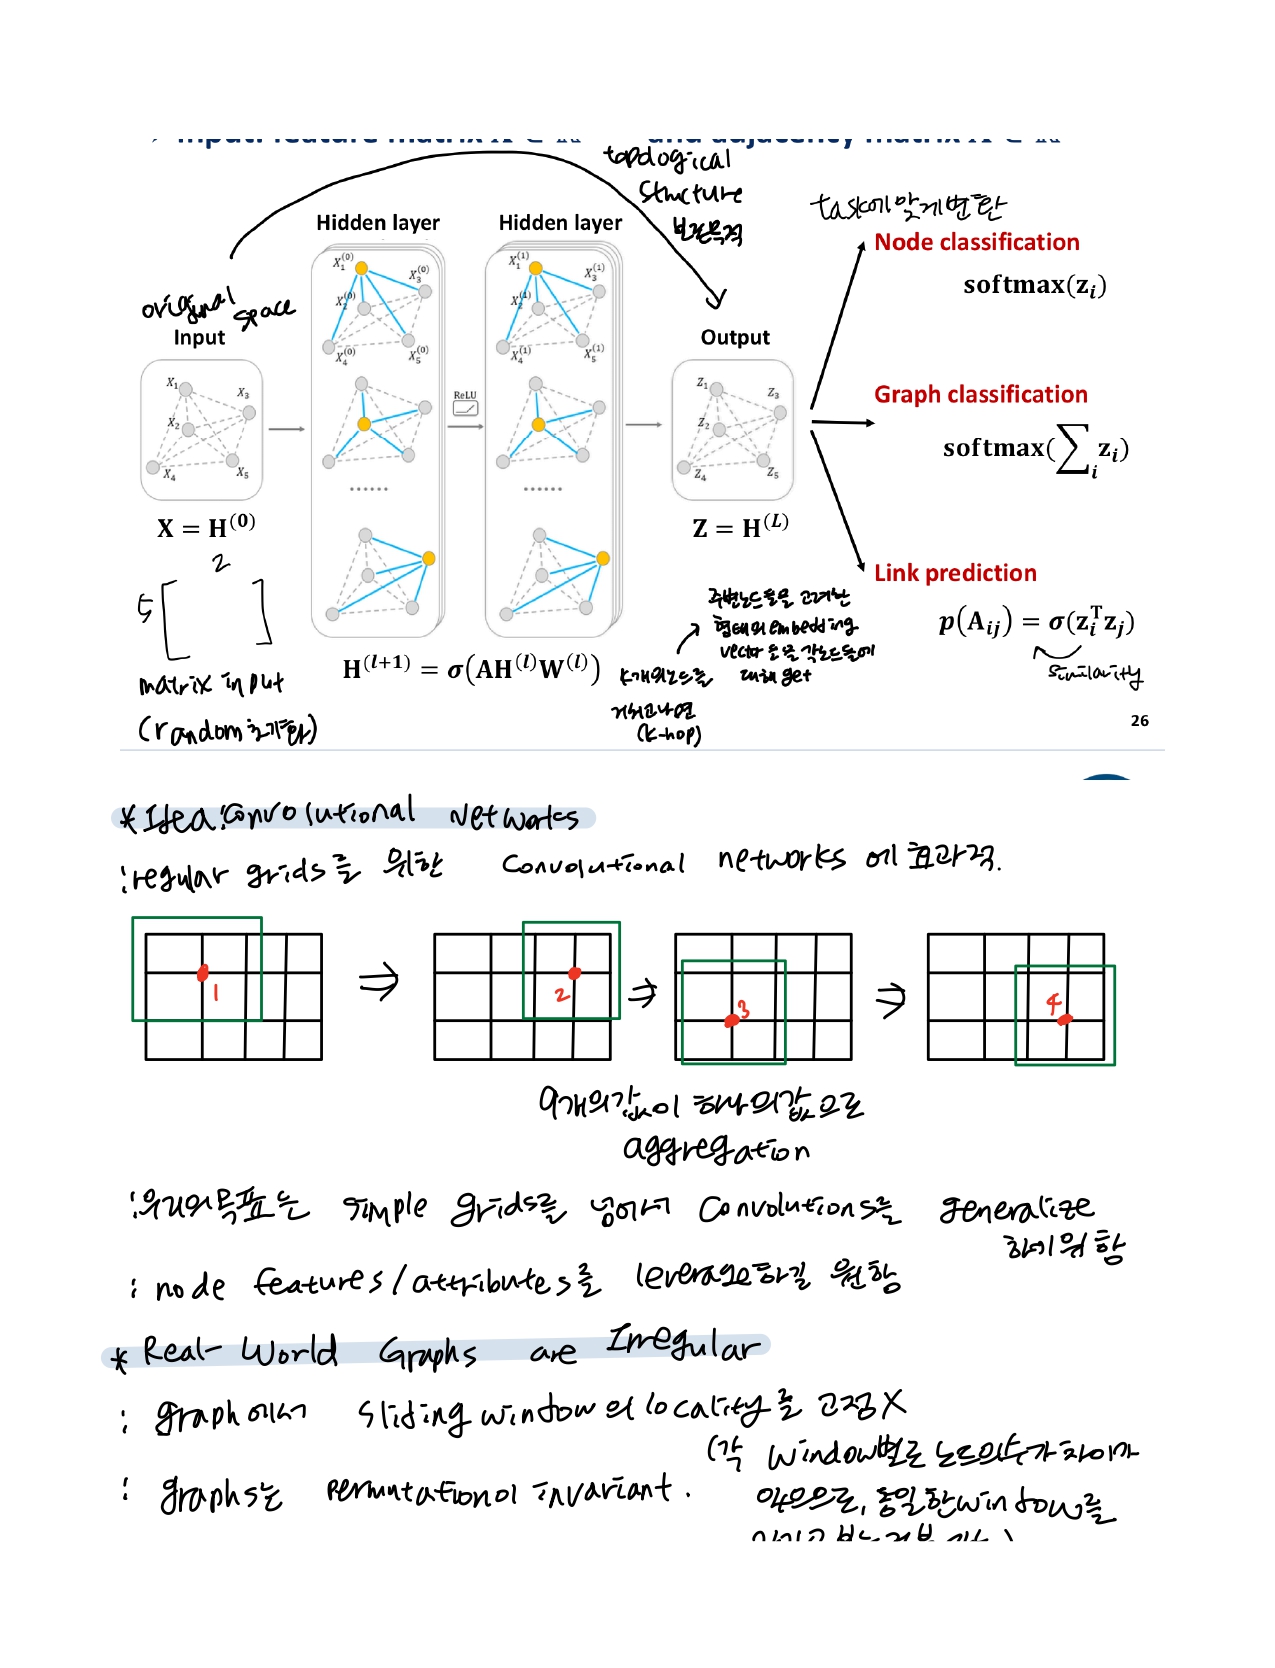 topological
structure
보존목적
task에 맞게변환
Hidden layer
Hidden layer
Node classification
softmax(z_i)
original
space
Input
Output
X₁⁽⁰⁾ X₂⁽⁰⁾ X₃⁽⁰⁾ X₄⁽⁰⁾ X₅⁽⁰⁾
X₁⁽¹⁾ X₂⁽¹⁾ X₃⁽¹⁾ X₄⁽¹⁾ X₅⁽¹⁾
X₁ X₂ X₃ X₄ X₅
ReLU
Z₁ Z₂ Z₃ Z₄ Z₅
Graph classification
softmax(∑_i z_i)
......
......
X = H⁽⁰⁾
Z = H⁽ᴸ⁾
Link prediction
p(A_ij) = σ(z_i^T z_j)
similarity
2
5
matrix input
(random초기화)
H⁽ˡ⁺¹⁾ = σ(AH⁽ˡ⁾W⁽ˡ⁾)
K개의노드를
거치고나면
(K-hop)
주변노드들을 고려한
형태의 embedding
vector들을 각노드들에
대해 get
26
* Idea: Convolutional Networks
: regular grids를 위한 Convolutional networks에 효과적.
1
2
3
4
9개의값이 하나의값으로
aggregation
: 우리의목표는 simple grids를 넘어서 Convolutions를 generalize
하기위함
: node features/attributes를 leverage하길 원함
* Real-World Graphs are Irregular
: graph에서 sliding window의 locality를 고정X
(각 window별로 노드의수가 차이가
있으므로, 동일한window를
: graphs는 permutation이 invariant.